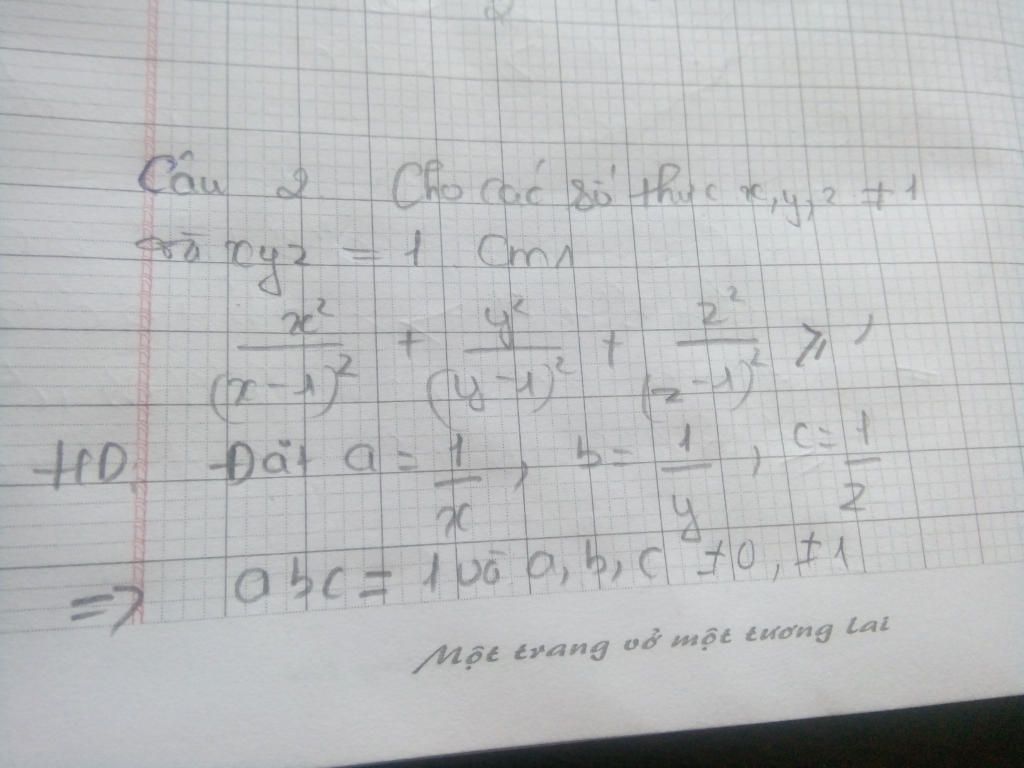 Câu 2 Cho các số thực x, y, z ≠ 1
và xyz = 1 Cm
x²/(x-1)² + y²/(y-1)² + z²/(z-1)² ≥ 1
HD Đặt a = 1/x, b = 1/y, c = 1/z
=> abc = 1 và a, b, c ≠ 0, ≠ 1
Một trang vở một tương lai